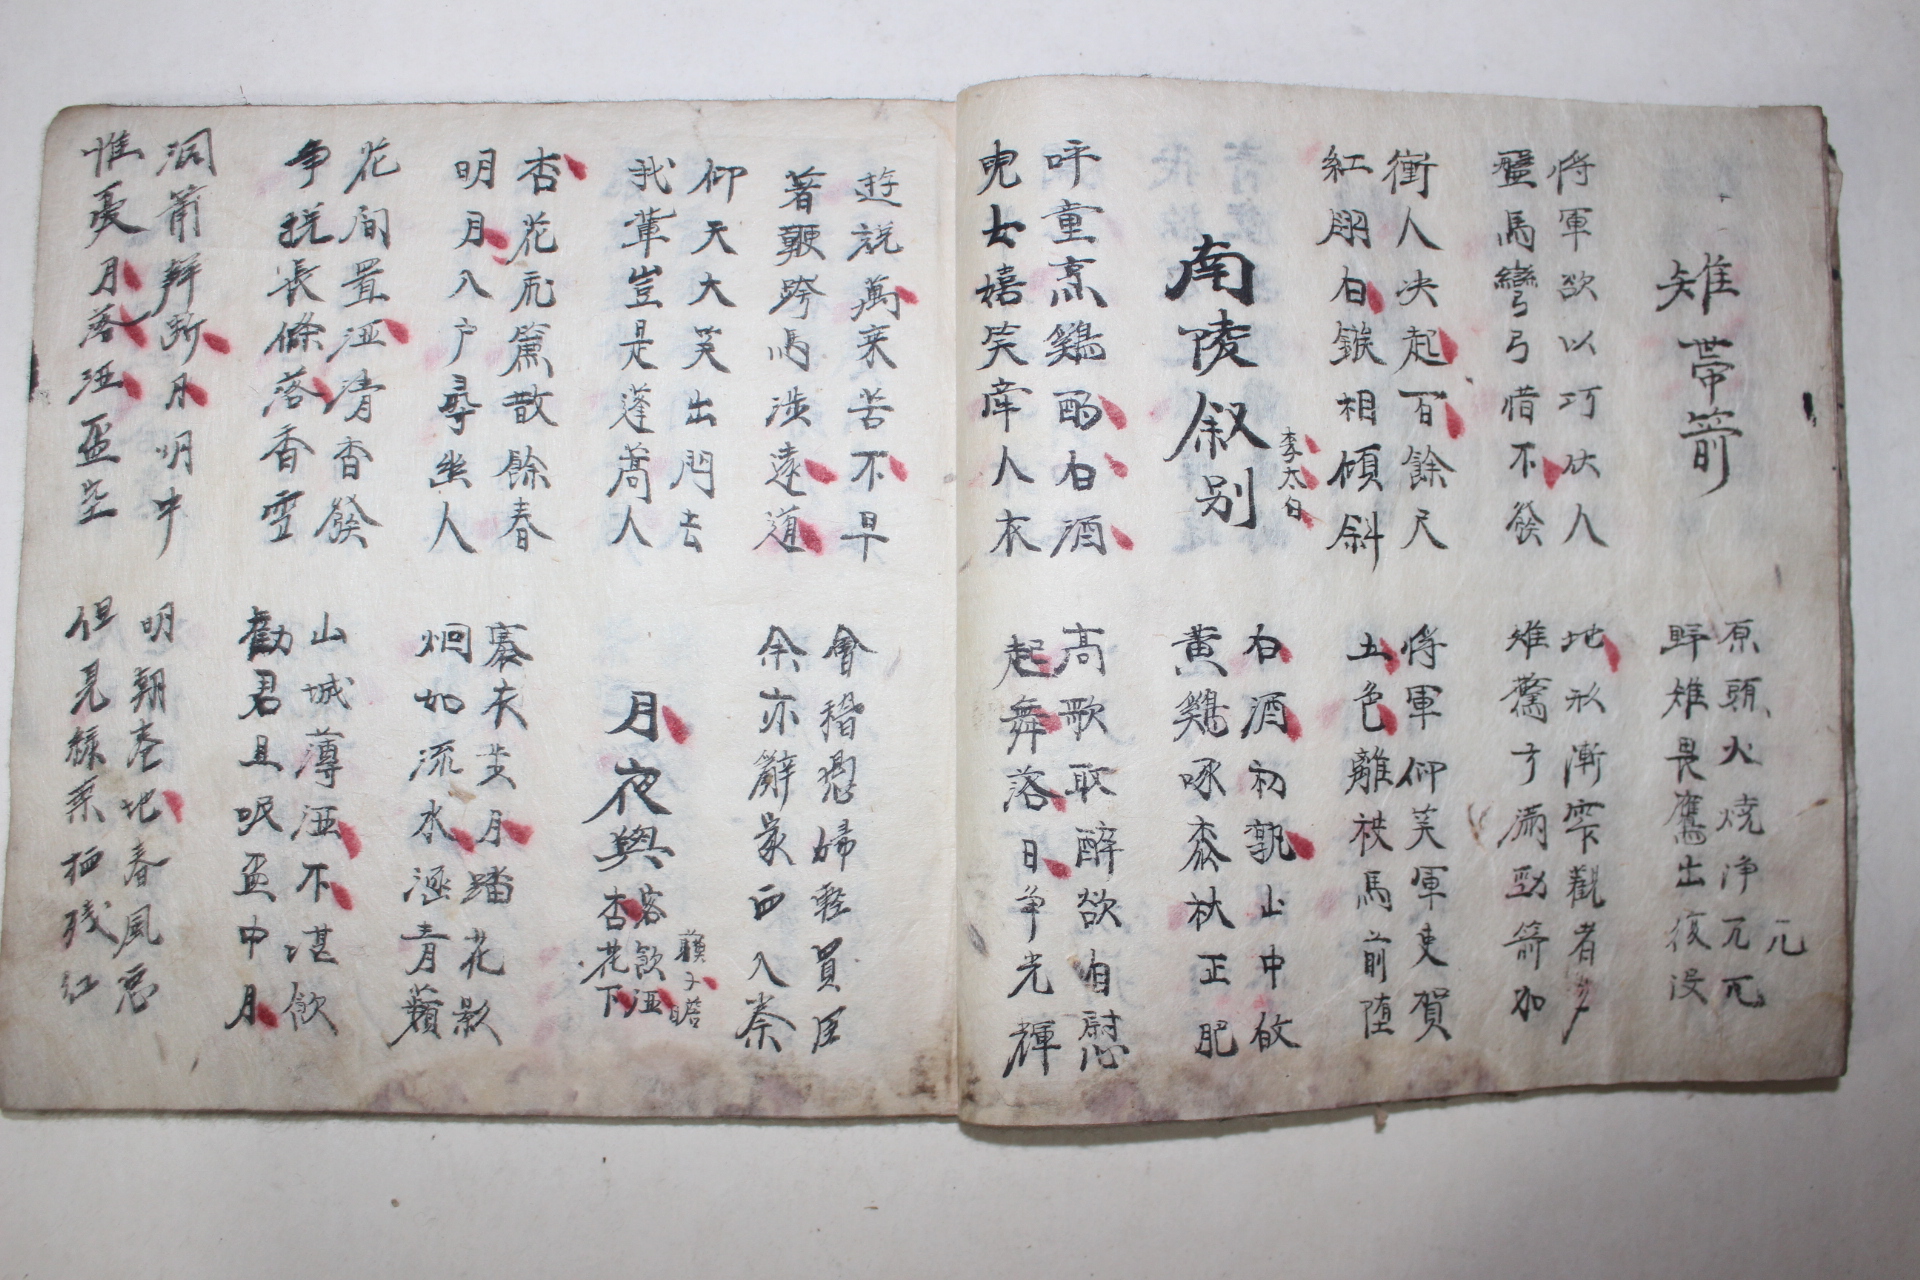 雉帶箭
原頭火燒浄兀兀
兀
野雉畏鷹出復沒
將軍欲以巧伏人
盤馬彎弓惜不發
地形漸窄觀者多
雉驚弓滿勁箭加
衝人决起百餘尺
紅翎白鏃相傾斜
將軍仰笑軍吏賀
五色離披馬前墮
南陵叙别
李太白
白酒初熟山中
黄鷄啄黍秋正肥
呼童烹鷄酌白酒
兒女嬉笑牽人衣
高歌取醉欲自慰
起舞落日争光輝
遊說萬乘苦不早
著鞭跨馬涉遠道
會稽愚婦輕買臣
余亦辭家西入秦
仰天大笑出門去
我輩豈是蓬蒿人
月夜與客飲酒杏花下
蘇子瞻
杏花飛簾散餘春
明月入户尋幽人
褰衣步月踏花影
炯如流水涵青蘋
花間置酒清香發
争挽長條落香雪
山城薄酒不堪飲
勸君且吸盃中月
洞簫聲斷月明中
惟憂月落酒盃空
明朝卷地春風惡
但見緑葉栖残紅